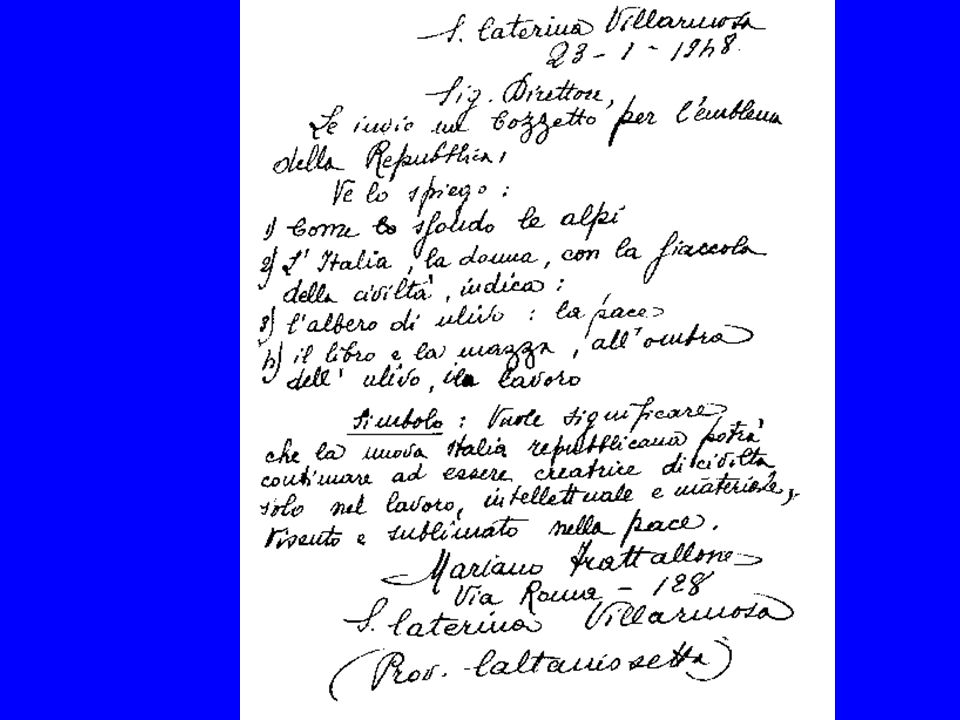 S. Caterina Villarmosa
23-1-1948.
Sig. Direttore,
Le invio un bozzetto per l'emblema
della Repubblica,
Ve lo spiego:
1) Come lo sfondo le alpi
2) L'Italia, la donna, con la fiaccola
della civiltà, indica:
3) l'albero di ulivo: la pace
4) il libro e la mazza, all'ombra
dell'ulivo, il lavoro
Simbolo: Vuole significare
che la nuova Italia repubblicana potrà
continuare ad essere creatrice di civiltà
solo nel lavoro, intellettuale e materiale,
vissuto e sublimato nella pace.
Mariano Frattallone
Via Roma - 128
S. Caterina Villarmosa
(Prov. Caltanissetta)